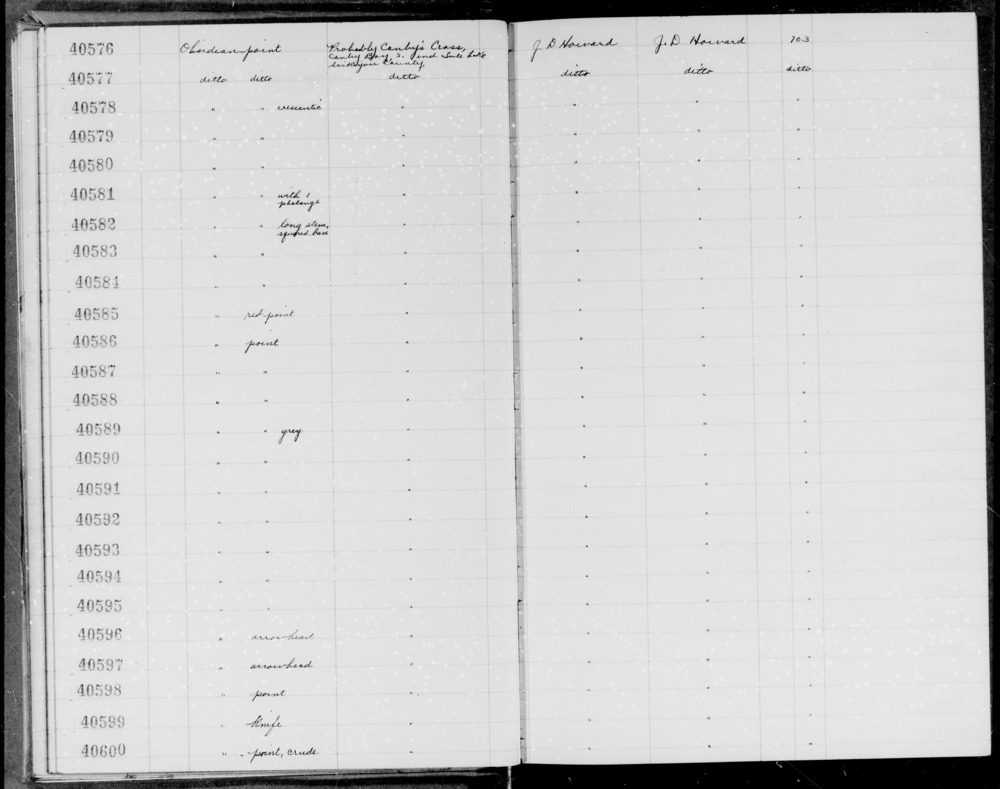 40576 Obsidian point Probably Canby's Cross, J D Howard J. D. Howard 703
Canby Bay, S. end Tule Lake
Siskiyou County,
40577 ditto ditto ditto ditto ditto ditto
40578 " " crescentic " " " "
40579 " " " " " "
40580 " " " " " "
40581 " " with 1 " " " "
phalange
40582 " " long stem, " " " "
squared base
40583 " " " " " "
40584 " " " " " "
40585 " red point " " " "
40586 " point " " " "
40587 " " " " " "
40588 " " " " " "
40589 " " grey " " " "
40590 " " " " " "
40591 " " " " " "
40592 " " " " " "
40593 " " " " " "
40594 " " " " " "
40595 " " " " " "
40596 " arrowhead " " " "
40597 " arrowhead " " " "
40598 " point " " " "
40599 " Knife " " " "
40600 " point, crude " " " "